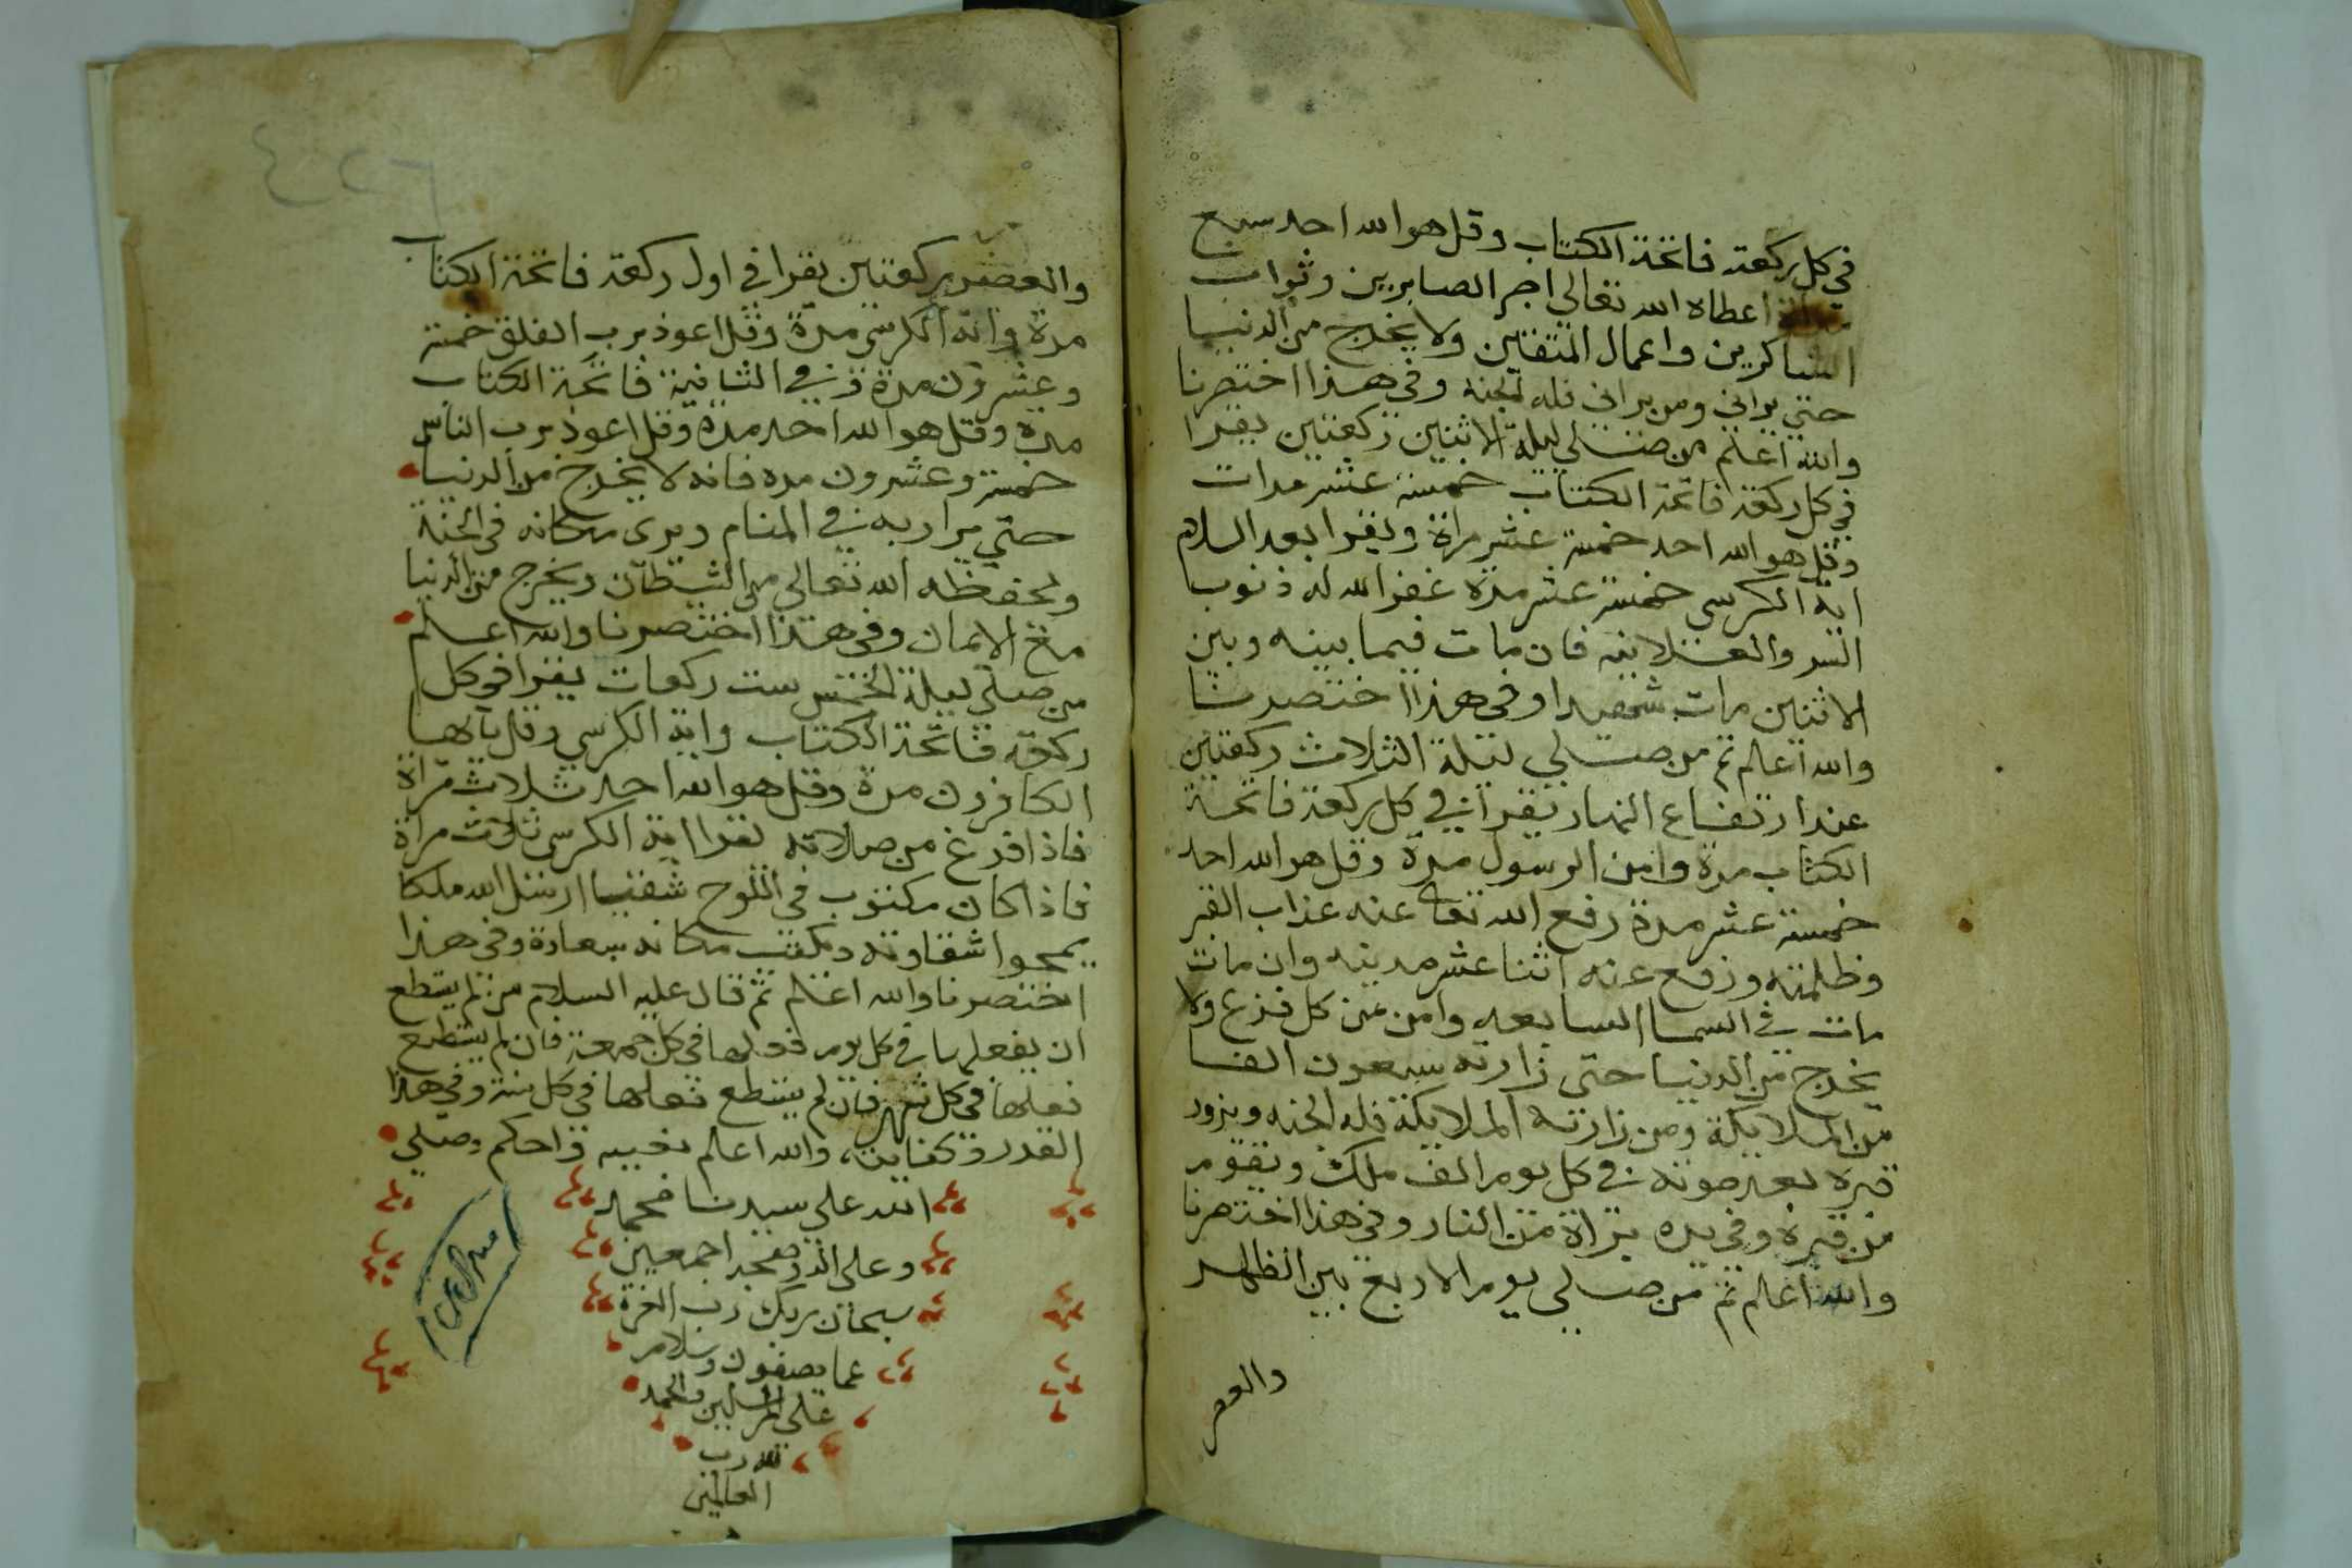 في كل ركعة فاتحة الكتاب وقل هو الله احد سبع
اعطاه الله تعالى اجر الصابرين وثواب
الشاكرين واعمال المتقين ولا يخرج من الدنيا
حتي يراني ومن يراني فله الجنة وفي هذا اختصرنا
والله اعلم من صلي ليلة الاثنين ركعتين يقرا
في كل ركعة فاتحة الكتاب خمسة عشر مرات
وقل هو الله احد خمسة عشر مراة ويقرا بعد السلام
اية الكرسي خمسة عشر مرة غفر الله له ذنوب
السر والعلانية فان مات فيما بينه وبين
الاثنين مات شهيدا وفي هذا اختصرنا
والله اعلم ثم من صلي ليلة الثلاث ركعتين
عند ارتفاع النهار يقرا في كل ركعة فاتحة
الكتاب مرة وامن الرسول مرة وقل هو الله احد
خمسة عشر مرة رفع الله تعالى عنه عذاب القبر
وظلمته ورفع عنه اثنا عشر مدينه وان مات
مات في السما السابعه وامن من كل فزع ولا
يخرج من الدنيا حتى زارته سبعون الفا
من الملايكة ومن زارته الملايكة فله الجنه ويزور
قبره بعد موته في كل يوم الف ملك ويقوم
من قبره وفي يده براة من النار وفي هذا اختصرنا
والله اعلم ثم من صلي يوم الاربع بين الظهر
والعصر
والعصر ركعتين يقرا في اول ركعة فاتحة الكتاب
مرة واية الكرسي مرة وقل اعوذ برب الفلق خمسة
وعشرون مرة وفي الثانية فاتحة الكتاب
مرة وقل هو الله احد مرة وقل اعوذ برب الناس
خمسة وعشرون مره فانه لا يخرج من الدنيا
حتي يرا ربه في المنام ويرى مكانه في الجنة
ويحفظه الله تعالي من الشيطان ويخرج من الدنيا
مع الايمان وفي هذا اختصرنا والله اعلم
من صلي ليلة الخميس ست ركعات يقرا في كل
ركعة فاتحة الكتاب واية الكرسي وقل يا ايها
الكافرون مرة وقل هو الله احد ثلاث مراة
فاذا فرغ من صلاته يقرا اية الكرسي ثلاث مراة
فاذا كان مكتوب في اللوح شقيا ارسل الله ملكا
يمحوا شقاوته ويكتب مكانه سعادة وفي هذا
اختصرنا والله اعلم ثم قال عليه السلام من لم يستطع
ان يفعلها في كل يوم فعلها في كل جمعة فان لم يستطع
فعلها في كل شهر فان لم يستطع فعلها في كل سنة وفي هذا
القدر كفاية والله اعلم بغيبه واحكم وصلي
الله علي سيدنا محمد
وعلى اله وصحبه اجمعين
سبحان ربك رب العزة
عما يصفون وسلام
على المرسلين والحمد
لله رب
العالمين